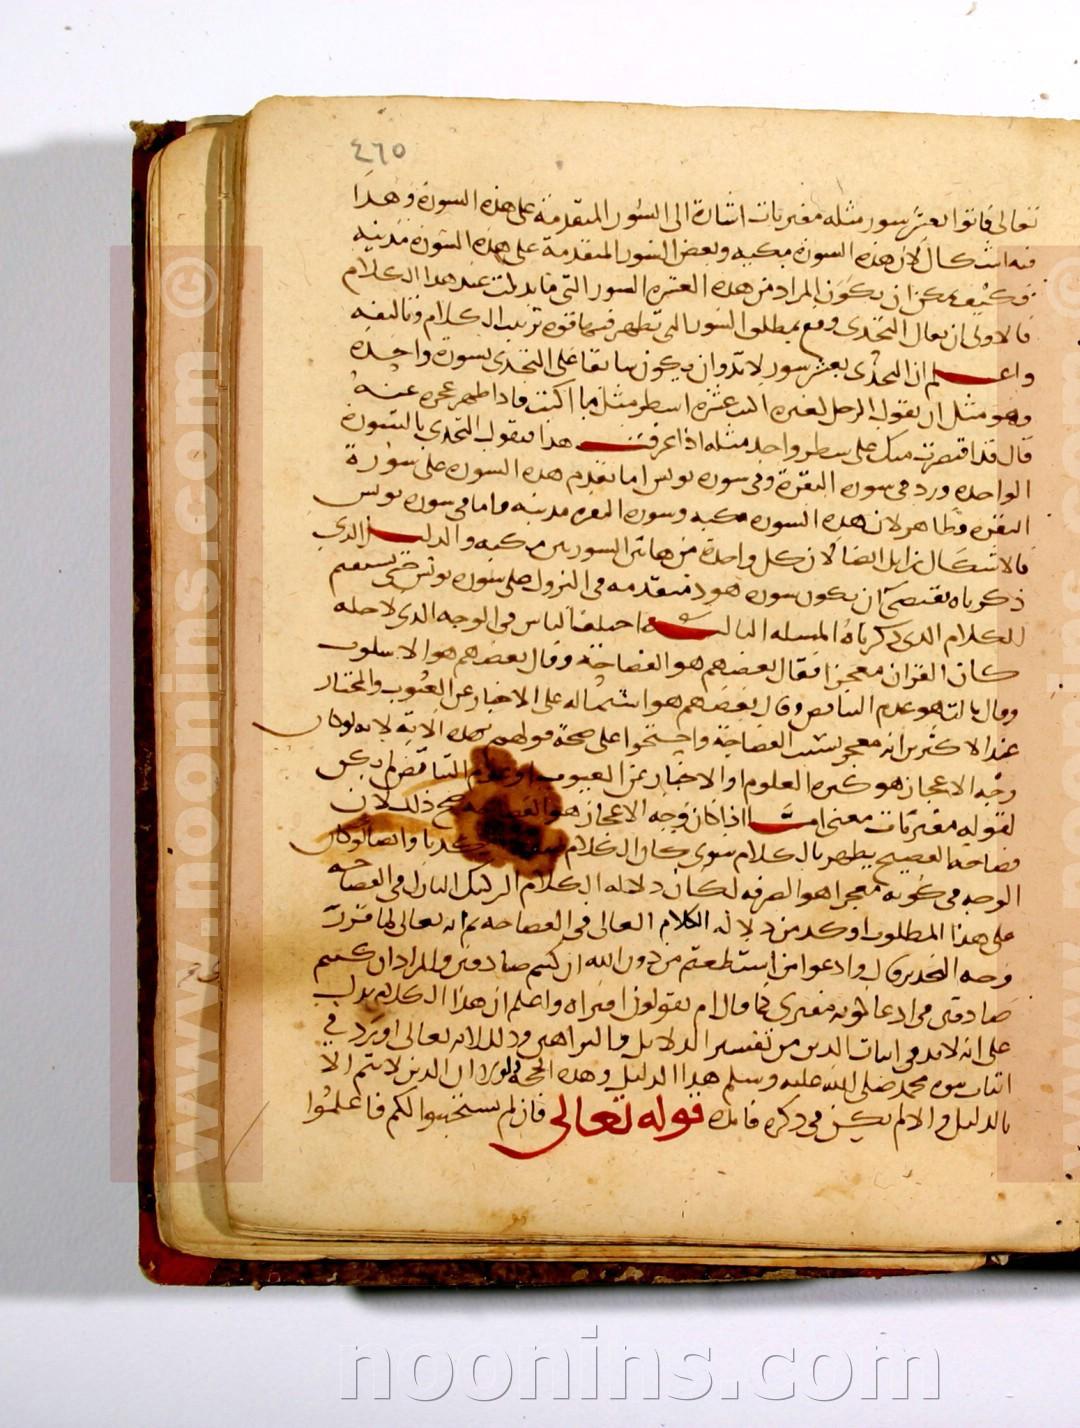 ٤٦٥
تعالى فاتوا بعشر سور مثله مفتريات اشارة الى السور المتقدمة على هذه السورة وهذا
فيه اشكال لان هذه السورة مكيه وبعض السور المتقدمة على هذه السورة مدنيه
فكيف يمكن ان يكون المراد من هذه العشره السور التى ما نزلت عند هذا الكلام
فالاولى ان يقال التحدى وقع بمطلق السور التى تظهر فيها قوه تركيب الكلام وتاليفه
واعلم ان التحدى بعشر سور لابد وان يكون سابقا على التحدى بسورة واحدة
وهو مثل ان يقول الرجل لغيره اكتب عشرة اسطر مثل ما اكتب فاذا ظهر عجزه عنه
قال قد اقتصرت منك على سطر واحد مثله اذا عرفت هذا فنقول التحدى بالسورة
الواحده ورد فى سورة البقرة وفى سوره يونس اما تقدم هذه السوره على سورة
البقره فظاهر لان هذه السوره مكيه وسورة البقره مدنيه واما فى سوره يونس
فالاشكال زايل ايضا لان كل واحدة من هاتين السورتين مكيه والدليل الذى
ذكرناه يقتضى ان يكون سوره هود متقدمه فى النزول على سوره يونس حتى يستقيم
الكلام الذى ذكرناه المسله الثالثه اختلف الناس فى الوجه الذى لاجله
كان القران معجزا فقال بعضهم هو الفصاحة وقال بعضهم هو الاسلوب
وقال ثالث هو عدم التناقض وقال بعضهم هو اشتماله على الاخبار عن الغيوب والمختار
عند الاكثرين انه معجز بسبب الفصاحة واحتجوا على صحة قولهم بهذه الاية لانه لو كان
وجه الاعجاز هو كثره العلوم او الاخبار عن الغيوب او عدم التناقض لم يكن
لقوله مفتريات معنى اما اذا كان وجه الاعجاز هو الفصاحة صح ذلك لان
فصاحه الفصيح يظهر بالكلام سوى كان الكلام كذبا وايضا لو كان
الوجه فى كونه معجزا هو الصرفه لكان دلاله الكلام الركيك النازل فى الفصاحه
على هذا المطلوب اوكد من دلالة الكلام العالى فى الفصاحه ثم انه تعالى لما قرر
وجه التحدى قال وادعوا من استطعتم من دون الله ان كنتم صادقين والمراد ان كنتم
صادقين فى ادعا كونه مفترى كما قال ام يقولون افتراه واعلم ان هذا الكلام يدل
على انه لابد فى اثبات الدين من تقسير الدلايل والبراهين وذلك لانه تعالى اورد فى
اثبات نبوه محمد صلى الله عليه وسلم هذا الدليل وهذه الحجه ولولا ان الدين لا يتم الا
بالدليل والا لم يكن فى ذكره فايده قوله تعالى فان لم يستجيبوا لكم فاعلموا
www.noonins.com ©
noonins.com